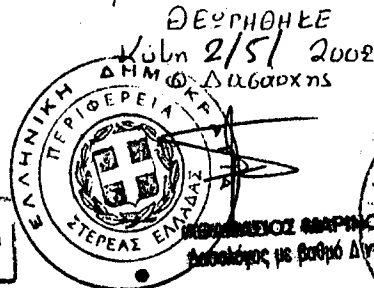 ΘΕΩΡΗΘΗΚΕ
Κύμη 2/5/2002
Ο Δασάρχης
ΕΛΛΗΝΙΚΗ ΔΗΜΟΚΡ
ΠΕΡΙΦΕΡΕΙΑ
ΣΤΕΡΕΑΣ ΕΛΛΑΔΑΣ
Δασολόγος με βαθμό